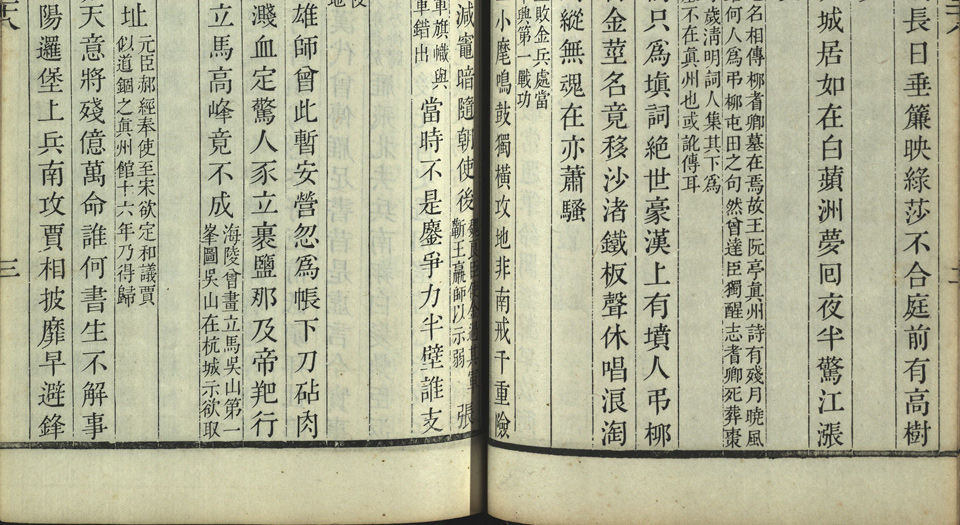 長日垂簾映綠莎不合庭前有高樹
城居如在白蘋洲夢囘夜半驚江漲
名相傳栁耆卿墓在焉故王阮亭眞州詩有殘月曉風
何人爲弔栁屯田之句然曾達臣獨醒志耆卿死葬棗
歲清明詞人集其下爲
不在眞州也或訛傳耳
只爲塡詞絕世豪漢上有墳人弔栁
金莖名竟移沙渚鐵板聲休唱浪淘
縱無魂在亦蕭騷
敗金兵處當
與第一戰功
小麾鳴鼓獨橫攻地非南戒千重險
減竈暗隨朝使後
蘄王羸師以示弱
張
軍旗幟與
重錯出
當時不是鏖爭力半壁誰支
雄師曾此暫安營忽爲帳下刀砧肉
濺血定驚人豕立裹鹽那及帝羓行
立馬高峰竟不成
海陵曾畫立馬吳山第一
峯圖吳山在杭城示欲取
址
元臣郝經奉使至宋欲定和議賈
似道錮之眞州館十六年乃得歸
天意將殘億萬命誰何書生不解事
邏堡上兵南攻賈相披靡早避鋒
三